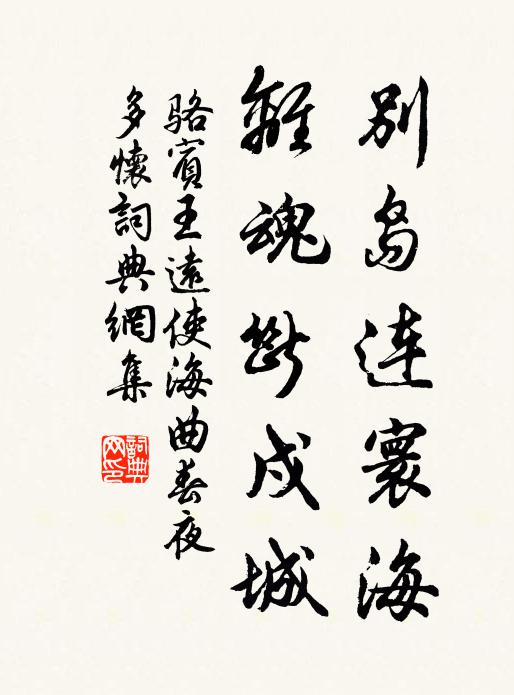 别岛连寰海
離魂斷戍城
骆賓王遠使海曲春夜
多懷詞典網集
詞典网印